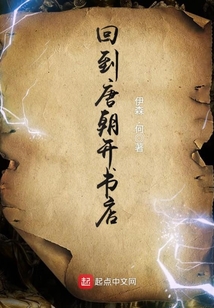 回到唐朝开书店
伊森·何 著
起点
起点中文网